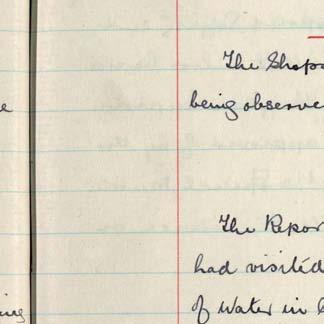 The Shops
being observe
The Repor
had visited
of Water in